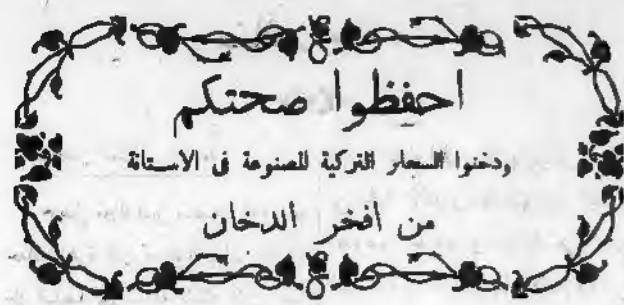 احفظوا صحتكم
ودخنوا السجاير التركية المصنوعة فى الاستانة
من أفخر الدخان